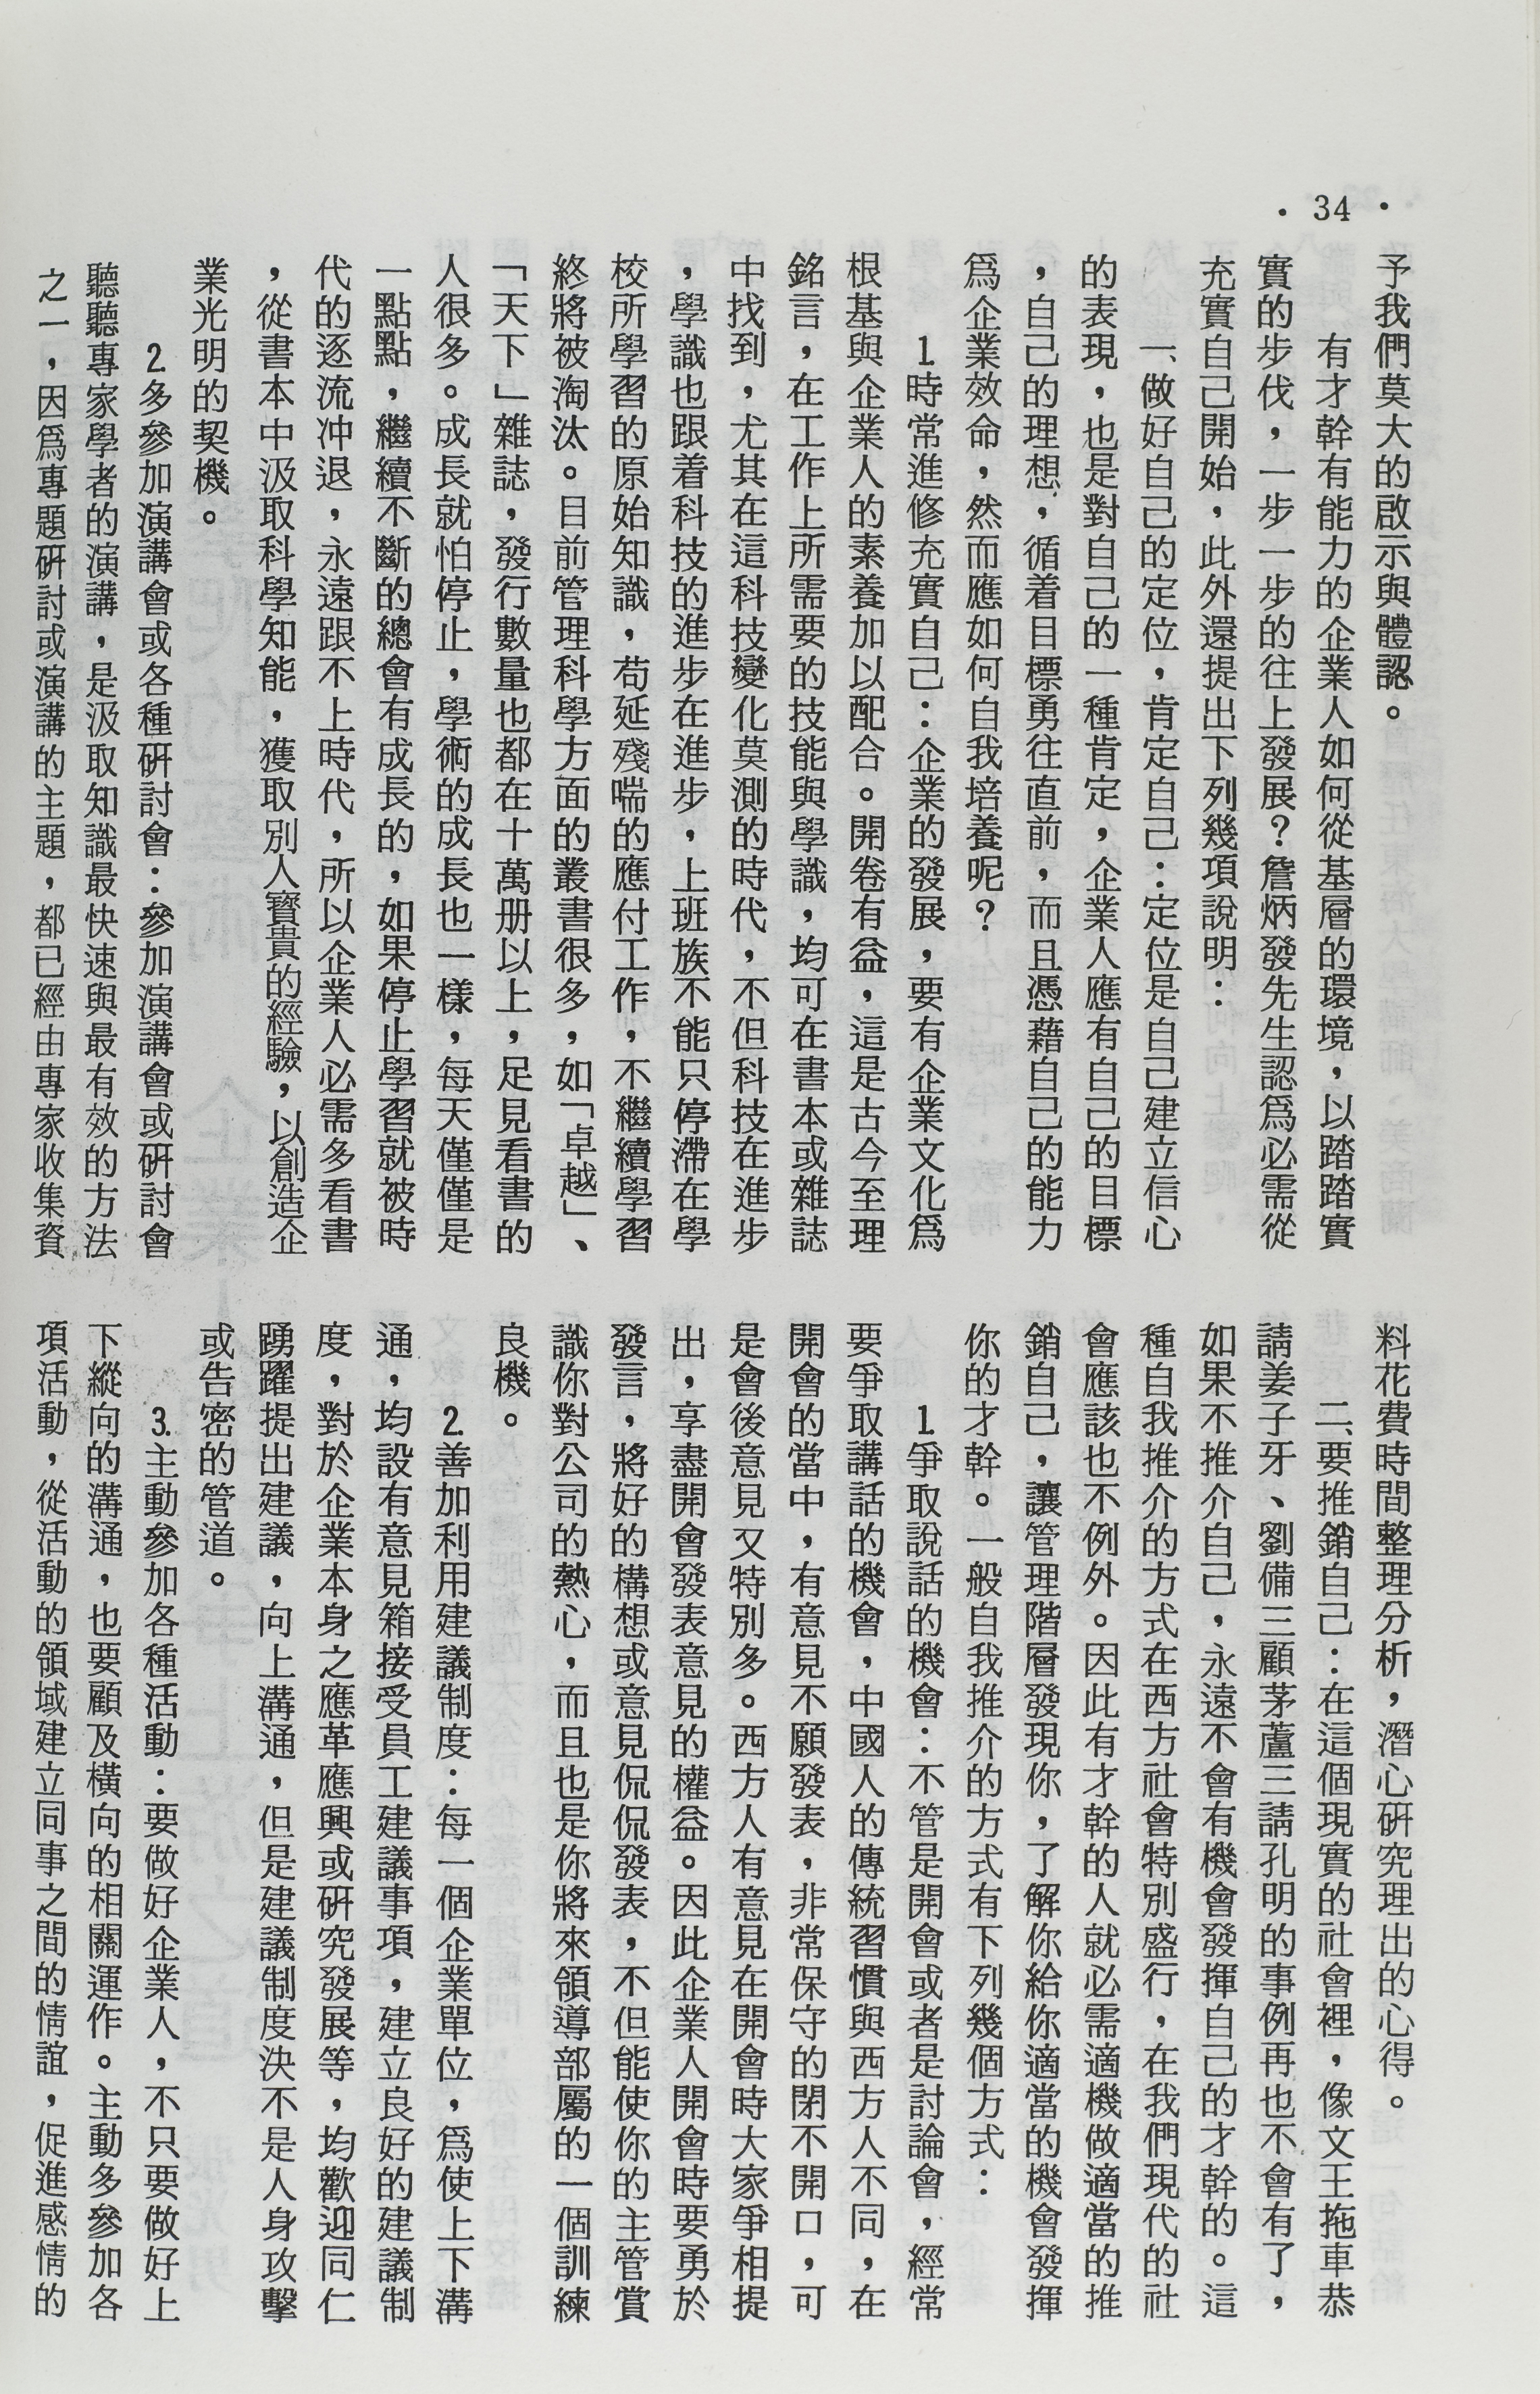 · 34 ·
予我們莫大的啟示與體認。
有才幹有能力的企業人如何從基層的環境，以踏踏實
實的步伐，一步一步的往上發展？詹炳發先生認爲必需從
充實自己開始，此外還提出下列幾項說明：
一、做好自己的定位，肯定自己：定位是自己建立信心
的表現，也是對自己的一種肯定，企業人應有自己的目標
，自己的理想，循着目標勇往直前，而且憑藉自己的能力
爲企業效命，然而應如何自我培養呢？
1.時常進修充實自己：企業的發展，要有企業文化爲
根基與企業人的素養加以配合。開卷有益，這是古今至理
銘言，在工作上所需要的技能與學識，均可在書本或雜誌
中找到，尤其在這科技變化莫測的時代，不但科技在進步
，學識也跟着科技的進步在進步，上班族不能只停滯在學
校所學習的原始知識，苟延殘喘的應付工作，不繼續學習
終將被淘汰。目前管理科學方面的叢書很多，如「卓越」、
「天下」雜誌，發行數量也都在十萬册以上，足見看書的
人很多。成長就怕停止，學術的成長也一樣，每天僅僅是
一點點，繼續不斷的總會有成長的，如果停止學習就被時
代的逐流冲退，永遠跟不上時代，所以企業人必需多看書
，從書本中汲取科學知能，獲取別人寶貴的經驗，以創造企
業光明的契機。
2.多參加演講會或各種研討會：參加演講會或研討會
聽聽專家學者的演講，是汲取知識最快速與最有效的方法
之一，因爲專題研討或演講的主題，都已經由專家收集資
料花費時間整理分析，潛心研究理出的心得。
二、要推銷自己：在這個現實的社會裡，像文王拖車恭
請姜子牙、劉備三顧茅蘆三請孔明的事例再也不會有了，
如果不推介自己，永遠不會有機會發揮自己的才幹的。這
種自我推介的方式在西方社會特別盛行，在我們現代的社
會應該也不例外。因此有才幹的人就必需適機做適當的推
銷自己，讓管理階層發現你，了解你給你適當的機會發揮
你的才幹。一般自我推介的方式有下列幾個方式：
1.爭取說話的機會：不管是開會或者是討論會，經常
要爭取講話的機會，中國人的傳統習慣與西方人不同，在
開會的當中，有意見不願發表，非常保守的閉不開口，可
是會後意見又特別多。西方人有意見在開會時大家爭相提
出，享盡開會發表意見的權益。因此企業人開會時要勇於
發言，將好的構想或意見侃侃發表，不但能使你的主管賞
識你對公司的熱心，而且也是你將來領導部屬的一個訓練
良機。
2.善加利用建議制度：每一個企業單位，爲使上下溝
通，均設有意見箱接受員工建議事項，建立良好的建議制
度，對於企業本身之應革應興或研究發展等，均歡迎同仁
踴躍提出建議，向上溝通，但是建議制度決不是人身攻擊
或告密的管道。
3.主動參加各種活動：要做好企業人，不只要做好上
下縱向的溝通，也要顧及橫向的相關運作。主動多參加各
項活動，從活動的領域建立同事之間的情誼，促進感情的